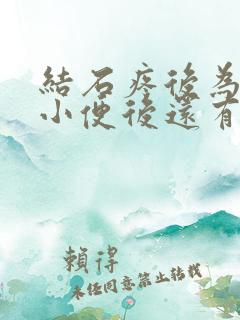 結石疼後為
小便後還有
賴得
未任同意禁止转载